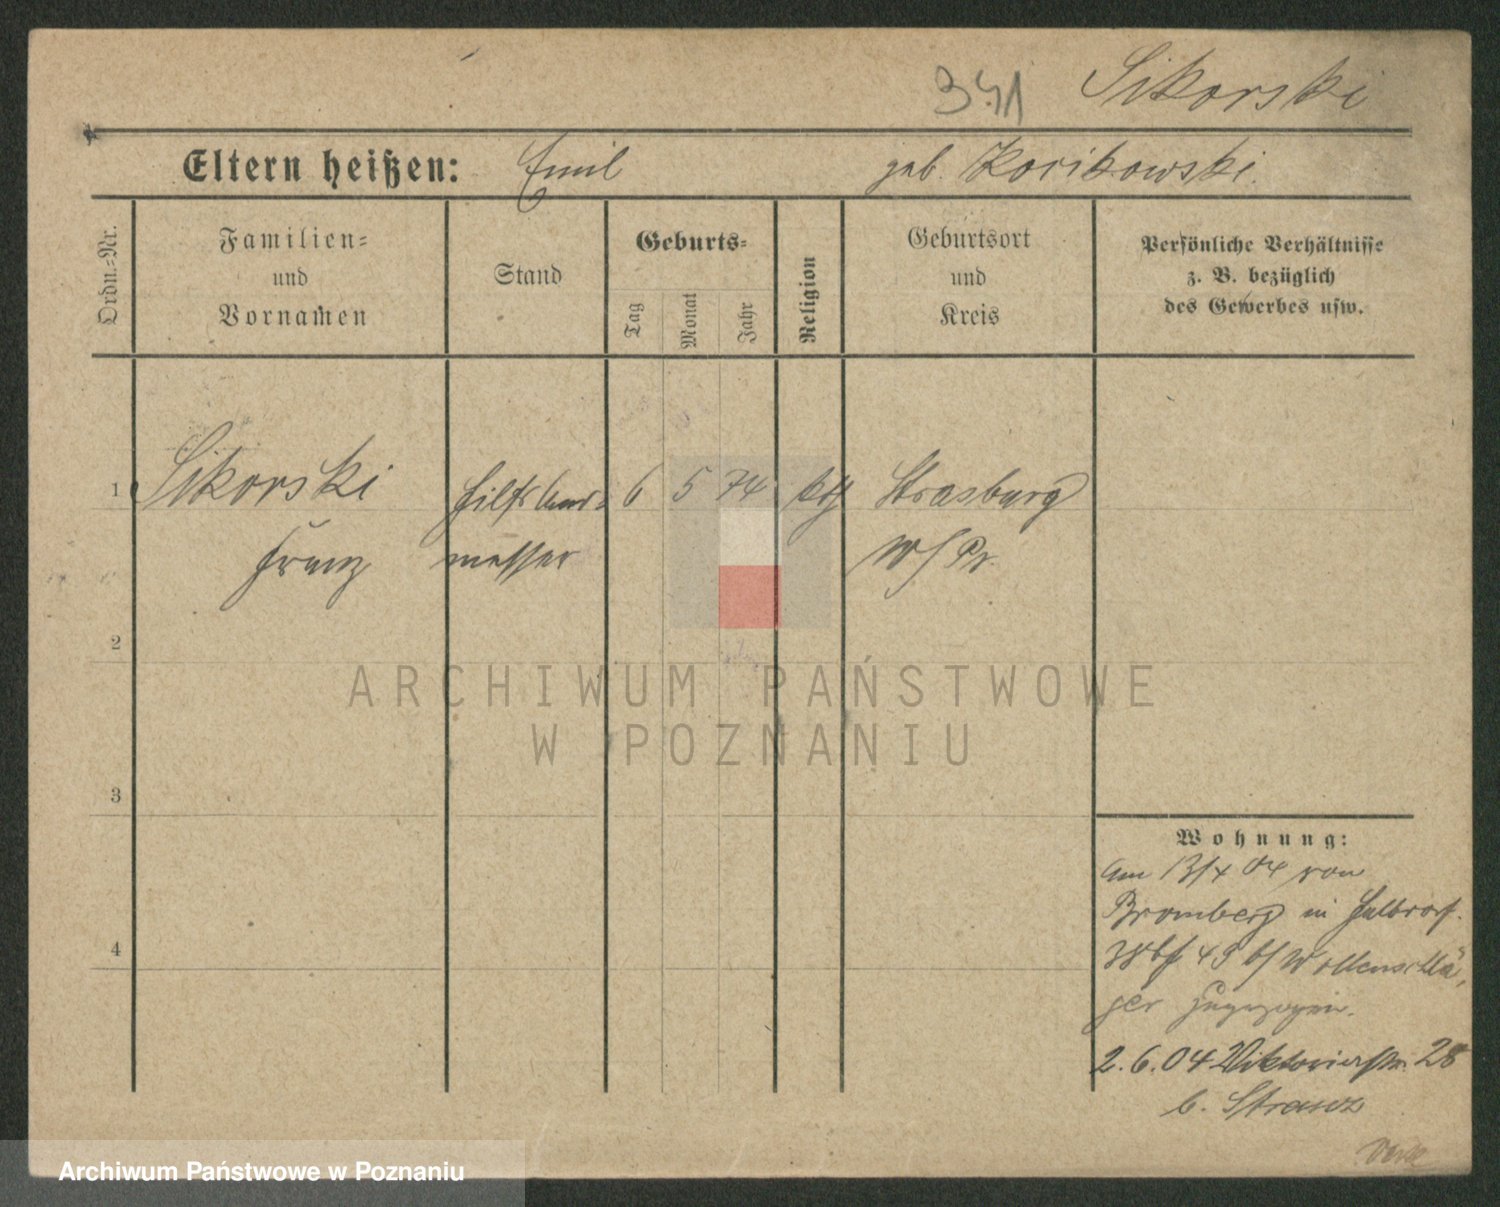 341 Sikorski
Eltern heißen: Emil geb. Korikowski.
Ordn.-Nr.
Familien-
und
Vornamen
Stand
Geburts-
Tag
Monat
Jahr
Religion
Geburtsort
und
Kreis
Persönliche Verhältnisse
z. B. bezüglich
des Gewerbes usw.
1 Sikorski Hilfsland= 6 5 74 kth Strasburg
Franz messer W/Pr.
2
3
4
ARCHIWUM PAŃSTWOWE
W POZNANIU
Wohnung:
Am 13/4 04 von
Bromberg in
49 b/ Wollenschlä
ger zugezogen.
2.6.04 Viktoriastr. 28
b. Stranz
Archiwum Państwowe w Poznaniu